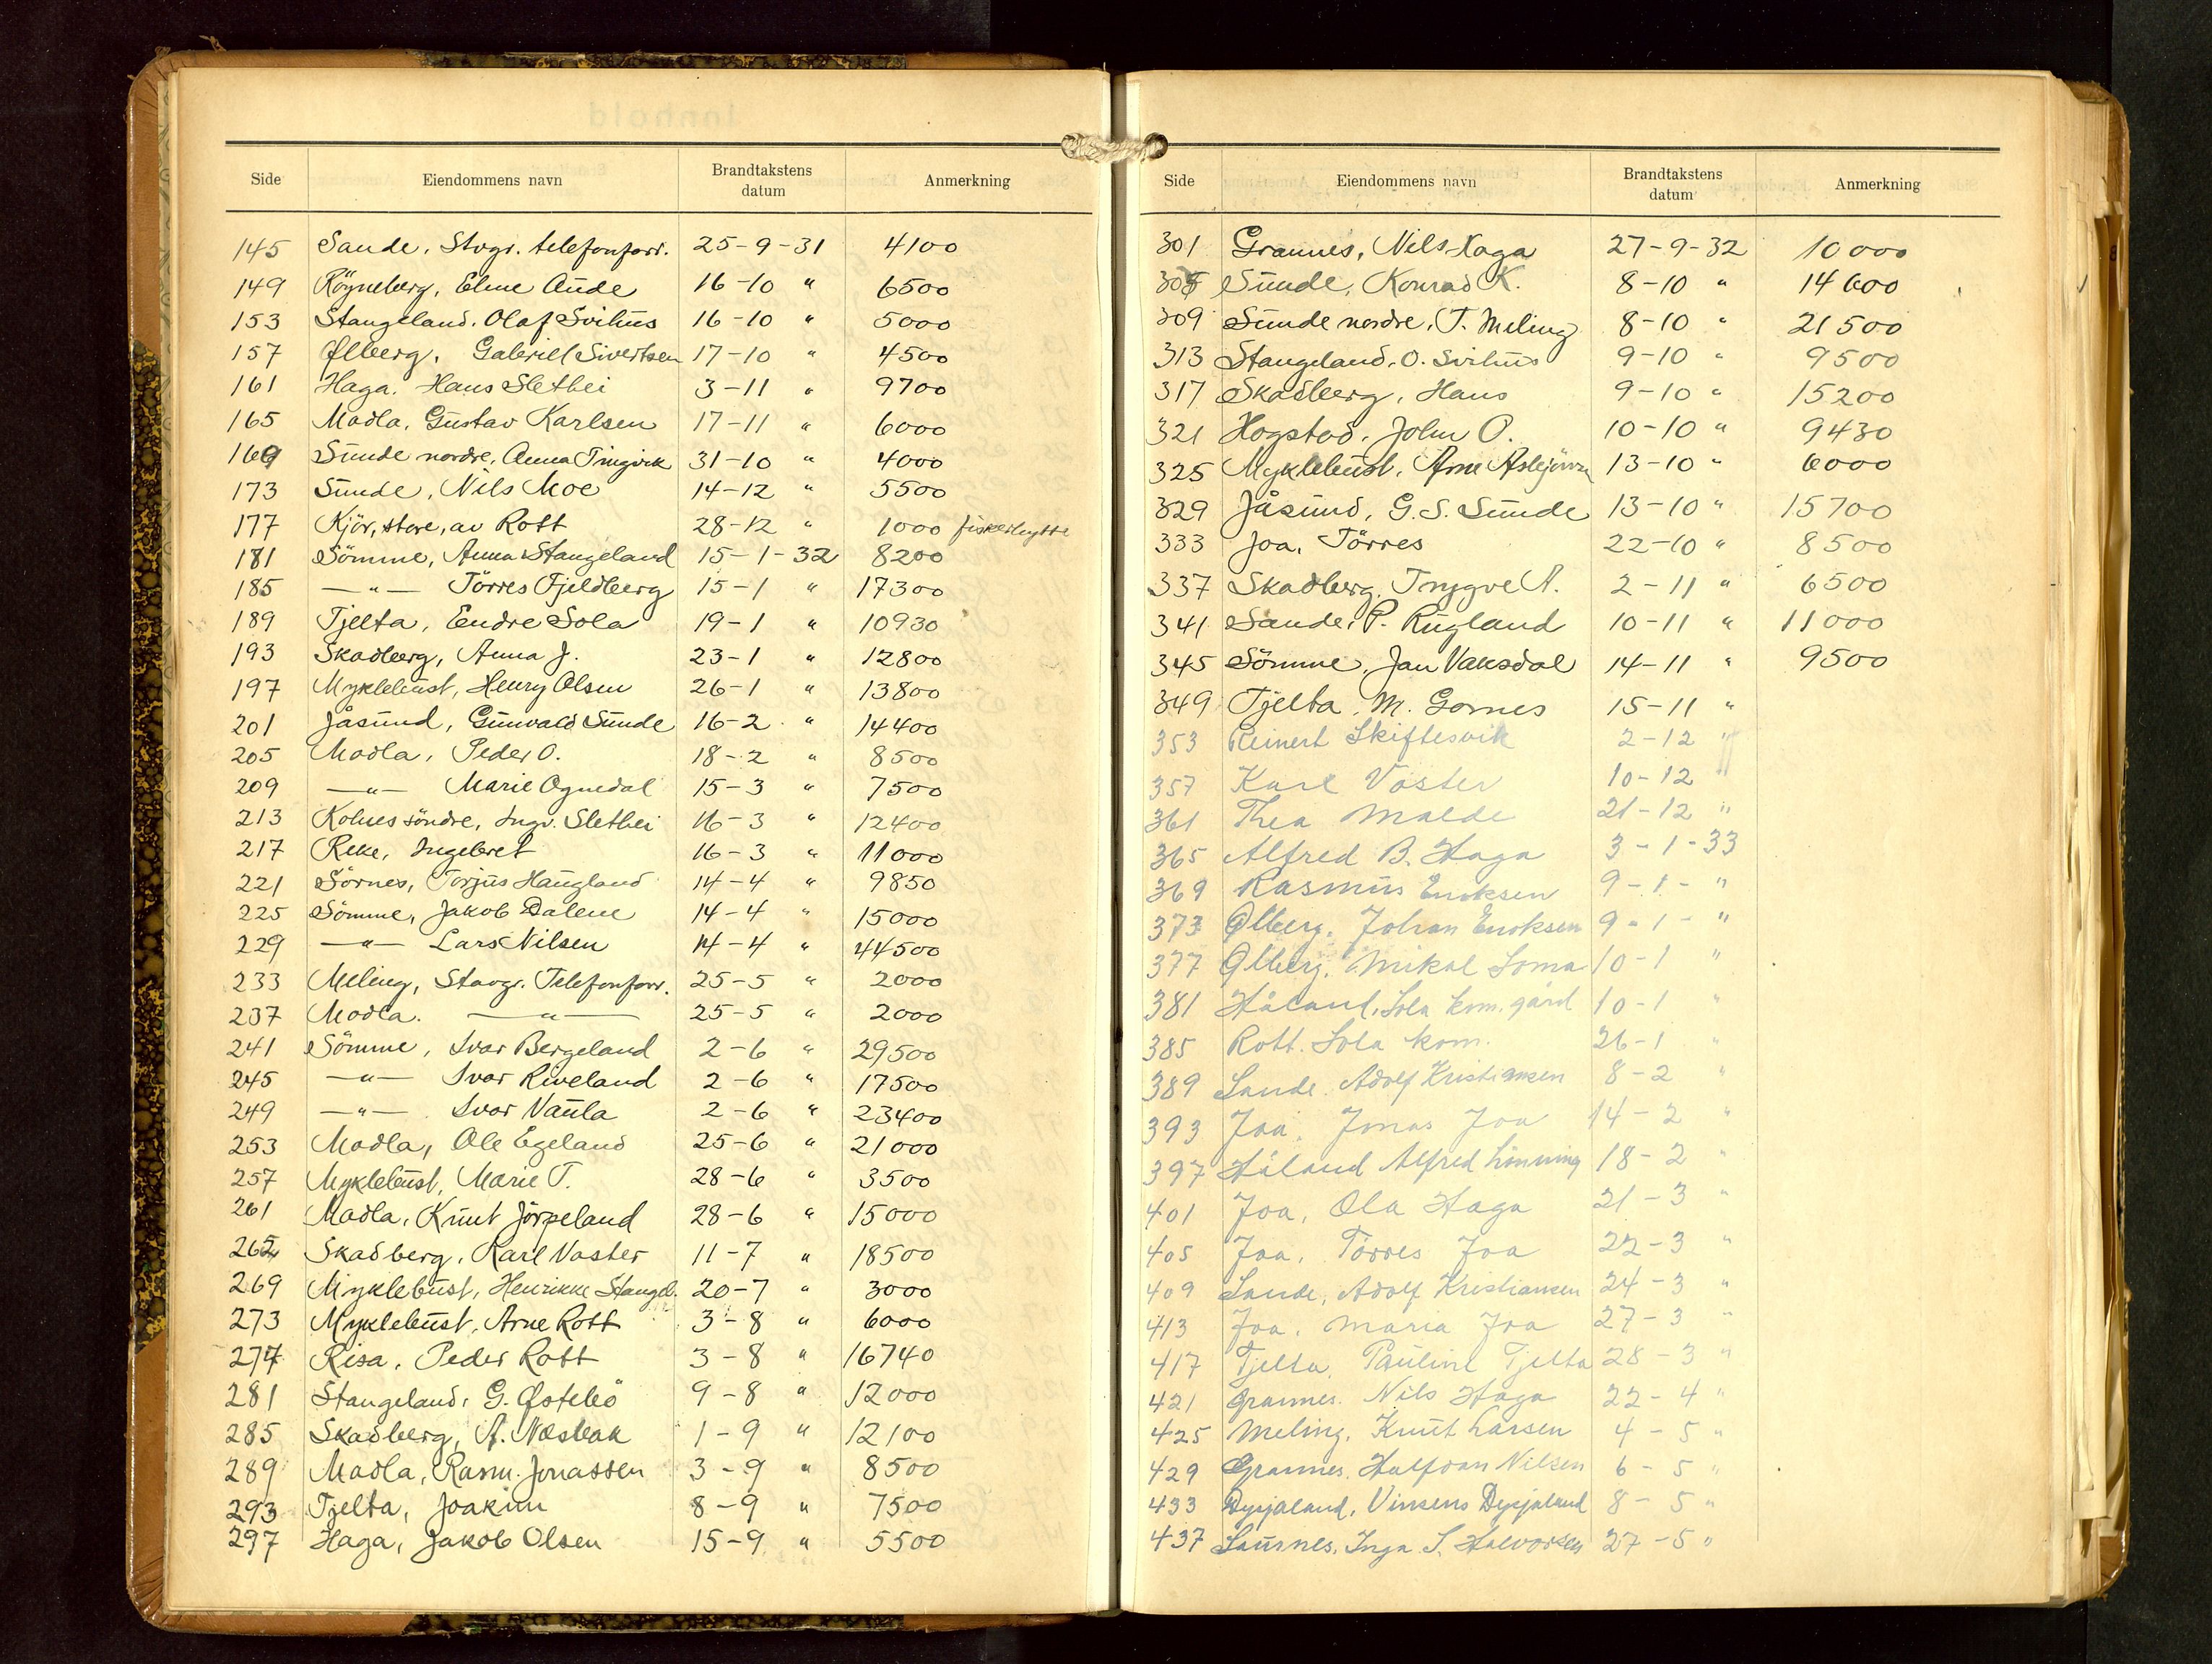 Side Eiendommens navn Brandtakstens datum Anmerkning
145 Sande, Stvgr. telefonforr. 25-9-31 4100
149 Røyneberg, Elene Aude 16-10 " 6500
153 Stangeland, Olaf Svihus 16-10 " 5000
157 Ølberg, Gabriell Sivertsen 17-10 " 4500
161 Haga, Hans Slethei 3-11 " 9700
165 Madla, Gustav Karlsen 17-11 " 6000
169 Sunde nordre, Anna Tingvik 31-10 " 4000
173 Sunde, Nils Moe 14-12 " 5500
177 Kjör, store, av Rott 28-12 " 1000 fiskerhytte
181 Sömme, Anna Stangeland 15-1-32 8200
185 —"— Törres Fjeldberg 15-1 " 17300
189 Tjelta, Endre Sola 19-1 " 10930
193 Skadberg, Anna J. 23-1 " 12800
197 Myklebust, Henry Olsen 26-1 " 13800
201 Jåsund, Gunvald Sunde 16-2 " 14400
205 Madla, Peder O. 18-2 " 8500
209 —"— Marie Ognedal 15-3 " 7500
213 Kolnes söndre, Ingv. Slethei 16-3 " 12400
217 Reke, Ingebret 16-3 " 11000
221 Sörnes, Torjus Haugland 14-4 " 9850
225 Sömme, Jakob Dalene 14-4 " 15000
229 —"— Lars Nilsen 14-4 " 44500
233 Meling, Stavgr. Telefonforr. 25-5 " 2000
237 Madla. —"— 25-5 " 2000
241 Sömme, Ivar Bergeland 2-6 " 29500
245 —"— Ivar Riveland 2-6 " 17500
249 —"— Ivar Vaula 2-6 " 23400
253 Madla, Ole Egeland 25-6 " 21000
257 Myklebust, Marie T. 28-6 " 3500
261 Madla, Knut Jörpeland 28-6 " 15000
265 Skadberg, Karl Vaster 11-7 " 18500
269 Myklebust, Henrikke Stangel. 20-7 " 3000
273 Myklebust, Arne Rott 3-8 " 6000
277 Risa, Peder Rott 3-8 " 16740
281 Stangeland, G. Østebö 9-8 " 12000
285 Skadberg, A. Nesbak 1-9 " 12100
289 Madla, Rasm. Jonassen 3-9 " 8500
293 Tjelta, Joakim 8-9 " 7500
297 Haga, Jakob Olsen 15-9 " 5500
Side Eiendommens navn Brandtakstens datum Anmerkning
301 Grannes, Nils Haga 27-9-32 10000
305 Sunde, Konrad K. 8-10 " 14600
309 Sunde nordre, T. Meling 8-10 " 21500
313 Stangeland, O. Svihus 9-10 " 9500
317 Skadberg, Hans 9-10 " 15200
321 Hogstad, John O. 10-10 " 9430
325 Myklebust, Arne Asbjörn 13-10 " 6000
329 Jåsund, G. S. Sunde 13-10 " 15700
333 Joa, Törres 22-10 " 8500
337 Skadberg, Trygve A. 2-11 " 6500
341 Sande, P. Rugland 10-11 " 11000
345 Sömme, Jan Vaksdal 14-11 " 9500
349 Tjelta, M. Gornes 15-11 "
353 Reinert Skiftesvik 2-12 "
357 Karl Vaster 10-12 "
361 Thea Malde 21-12 "
365 Alfred B. Haga 3-1-33
369 Rasmus Enoksen 9-1- "
373 Ølberg, Johan Enoksen 9-1- "
377 Ølberg, Mikal Soma 10-1 "
381 Håland, Sola kom. gård 10-1 "
385 Rott. Sola kom. 26-1 "
389 Sande. Adolf Kristiansen 8-2 "
393 Joa, Jonas Joa 14-2 "
397 Håland Alfred Lönning 18-2 "
401 Joa, Ola Haga 21-3 "
405 Joa, Törres Joa 22-3 "
409 Sande, Adolf Kristiansen 24-3 "
413 Joa, Maria Joa 27-3 "
417 Tjelta, Pauline Tjelta 28-3 "
421 Grannes. Nils Haga 22-4 "
425 Meling, Knut Larsen 4-5 "
429 Grannes, Halfdan Nilsen 6-5 "
433 Dysjaland, Vinsens Dysjaland 8-5 "
437 Saurnes, Inga S. Halvorsen 27-5 "